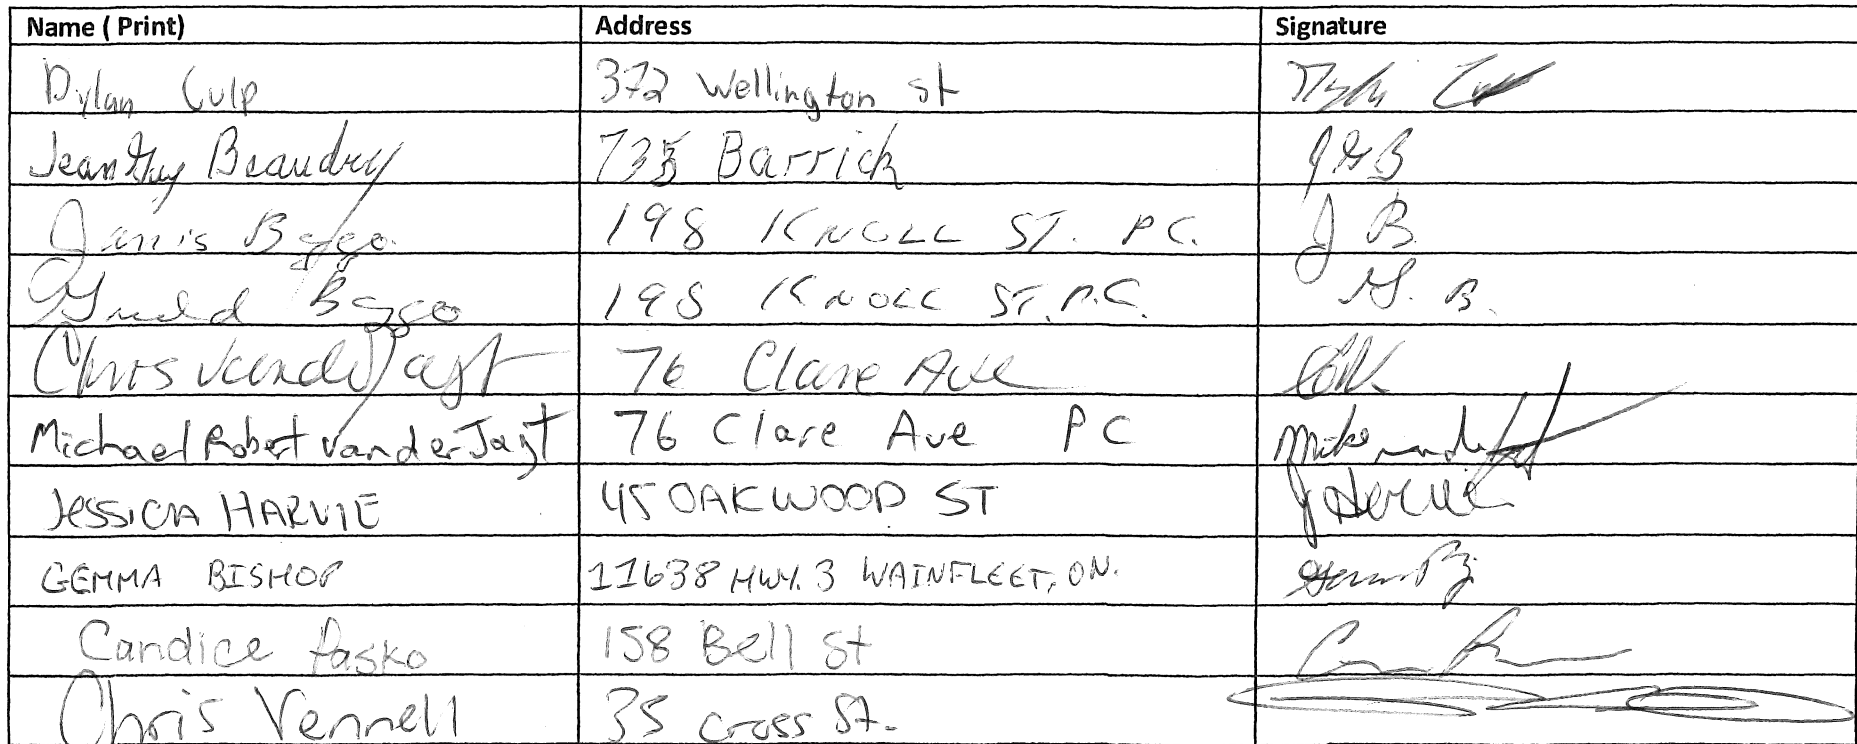 Name ( Print) Address Signature
Dylan Culp 372 Wellington St
Jean Guy Beaudry 735 Barrick JGB
Janis 198 KNOLL ST. P.C. J B.
198 KNOLL ST. P.C. G. B.
Chris VanderJagt 76 Clare Ave
Michael Robert Vander Jagt 76 Clare Ave PC Mike
JESSICA HARVIE 45 OAKWOOD ST J Harvie
GEMMA BISHOP 11638 HWY. 3 WAINFLEET, ON.
Candice Pasko 158 Bell St
Chris Vennell 35 Cross St.